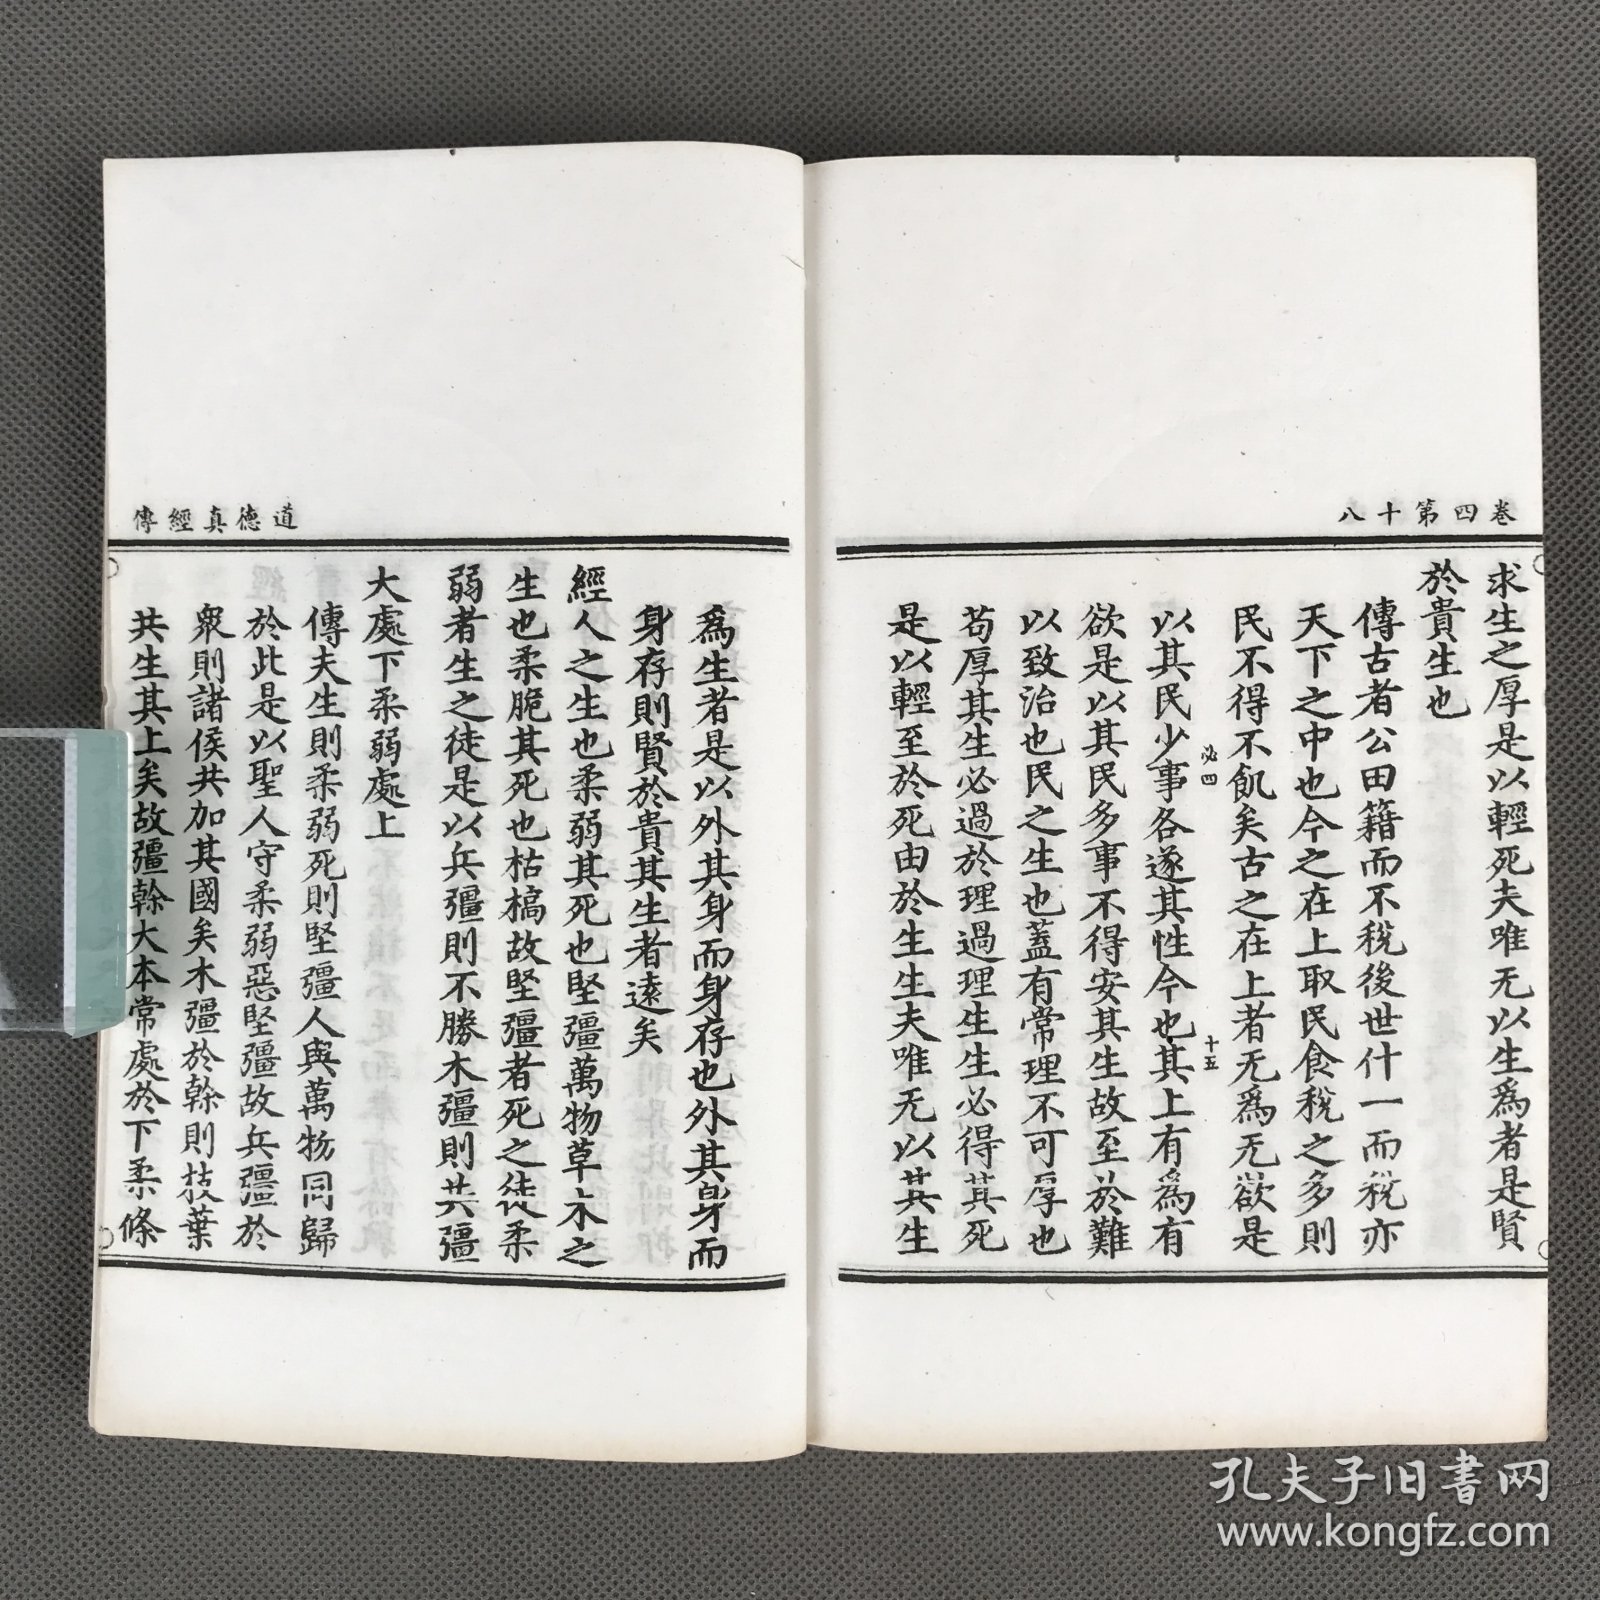 卷四第十八
求生之厚是以輕死夫唯无以生為者是賢
於貴生也
傳古者公田籍而不稅後世什一而稅亦
天下之中也今之在上取民食稅之多則
民不得不飢矣古之在上者无為无欲是
必四
十五
以其民少事各遂其性今也其上有為有
欲是以其民多事不得安其生故至於難
以致治也民之生也蓋有常理不可厚也
苟厚其生必過於理過理生生必得其死
是以輕至於死由於生生夫唯无以其生
道德真經傳
為生者是以外其身而身存也外其身而
身存則賢於貴其生者遠矣
經人之生也柔弱其死也堅彊萬物草木之
生也柔脆其死也枯槁故堅彊者死之徒柔
弱者生之徒是以兵彊則不勝木彊則共彊
大處下柔弱處上
傳夫生則柔弱死則堅彊人與萬物同歸
於此是以聖人守柔弱惡堅彊故兵彊於
衆則諸侯共加其國矣木彊於幹則枝葉
共生其上矣故彊幹大本常處於下柔條
孔夫子旧书网
www.kongfz.com